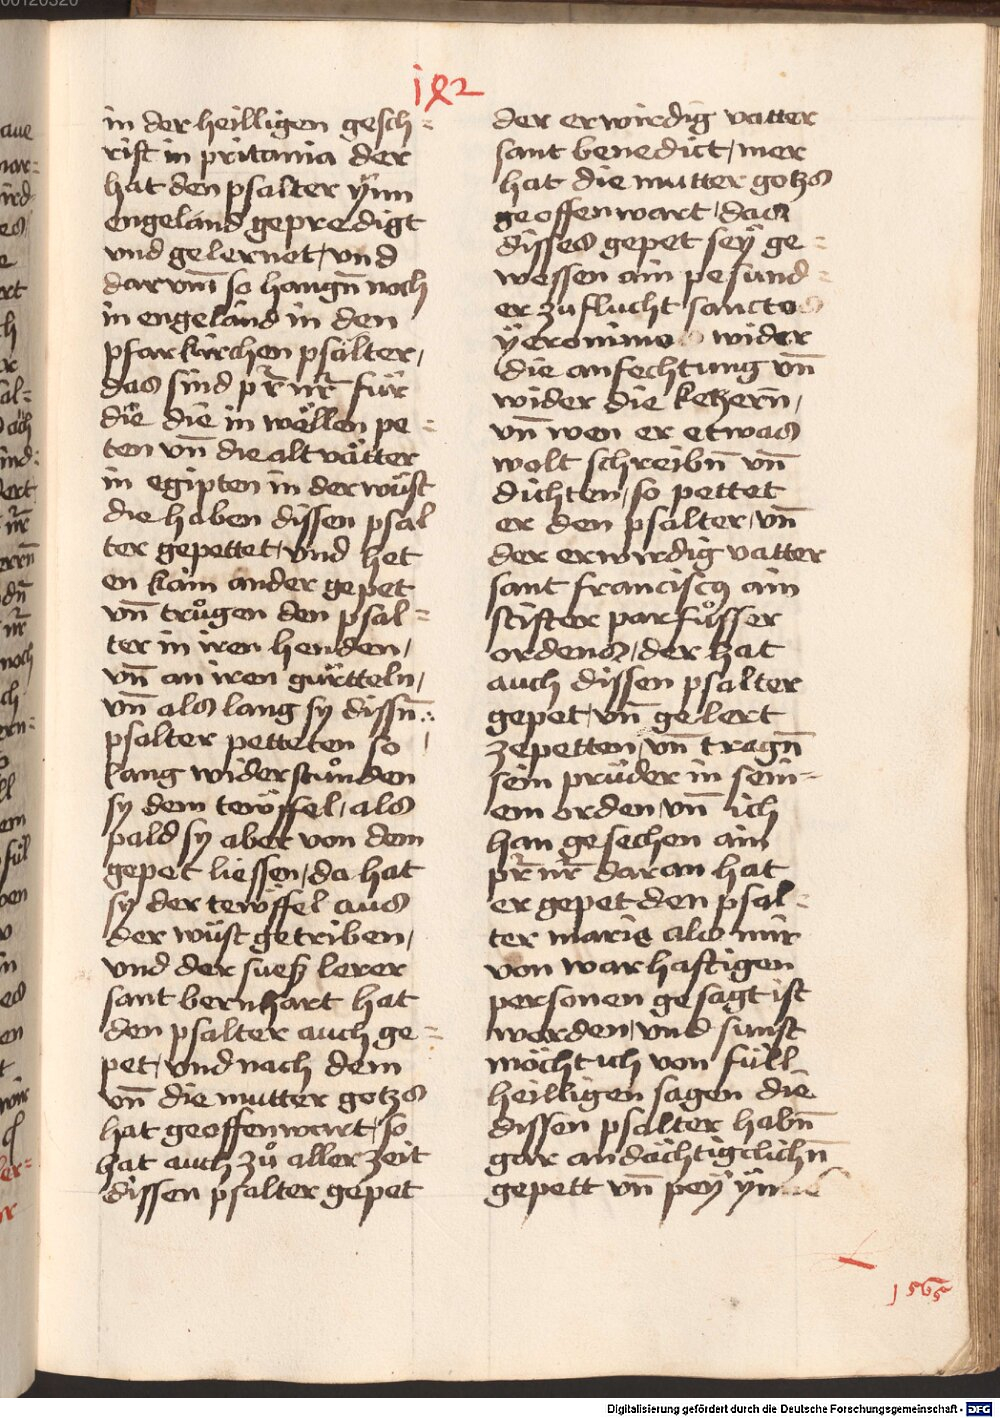 00120320
1ꝭ2
in der heilligen gesch=
rift in pritania der
hat den psalter ÿnn
engeland gepredigt
vnd gelernet, vnd
darvm̄ so hangn̄ noch
in engeland in den
pfarkirchen psalter,
das sind pr̄ nr̄ für
die die in wöllen pe=
ten vn̄ die alt vätter
in egipten in der wüst
die haben dissen psal
ter gepettet, vnd het
en kain ander gepet
vn̄ truͦgen den psal=
ter in iren henden,
vn̄ an iren gürtteln,
vn̄ als lang sy dissn̄
psalter petteten so
lang widerstuͦnden
sy dem tewffel, als
pald sy aber von dem
gepet liessen, da hat
sy der tewffel aus
der wüst getriben,
vnd der suesz lerer
sant bernhart hat
den psalter auch ge=
pet, vnd nach dem
vn̄ die mutter gotzs
hat geoffenwart, so
hat auch zuͦ aller zeit
dissen psalter gepet
der erwirdig vatter
sant benedict, mer
hat die mutter gotzs
geoffenwart, das
disses gepet seÿ ge=
wessen ain pesund=
er zuflucht sanctos
ÿeronimo wider
die anfechtung vn̄
wider die ketzern̄,
vn̄ wen er etwas
wolt schreibn̄ vn̄
dichten, so pettet
er den psalter, vn̄
der erwirdig vatter
sant franciscꝰ ain
stifter parfuͦsser
ordens, der hat
auch dissen psalter
gepet, vn̄ gelert
zepetten, vn̄ tragn̄
sein prüder in sein=
em orden, vn̄ ich
han gesechen ain
pr̄ nr̄ daran hat
er gepet den psal=
ter maris als mir
von warhaftigen
personen gesagt ist
worden, vnd sunst
möcht ich von füll
heilligen sagen die
dissen psalter habn̄
gar andächtigclichn̄
gepett vn̄ peÿ
1565
Digitalisierung gefördert durch die Deutsche Forschungsgemeinschaft - DFG